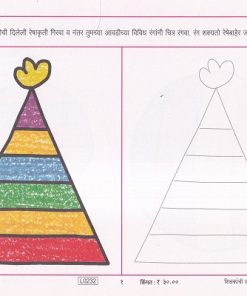 दिलेली रेषाकृती गिरवा व नंतर तुमच्या आवडीच्या विविध रंगांनी चित्र रंगवा. रंग शक्यतो रेषेबाहेर
L0232 १ किंमत : ₹ ३०.००